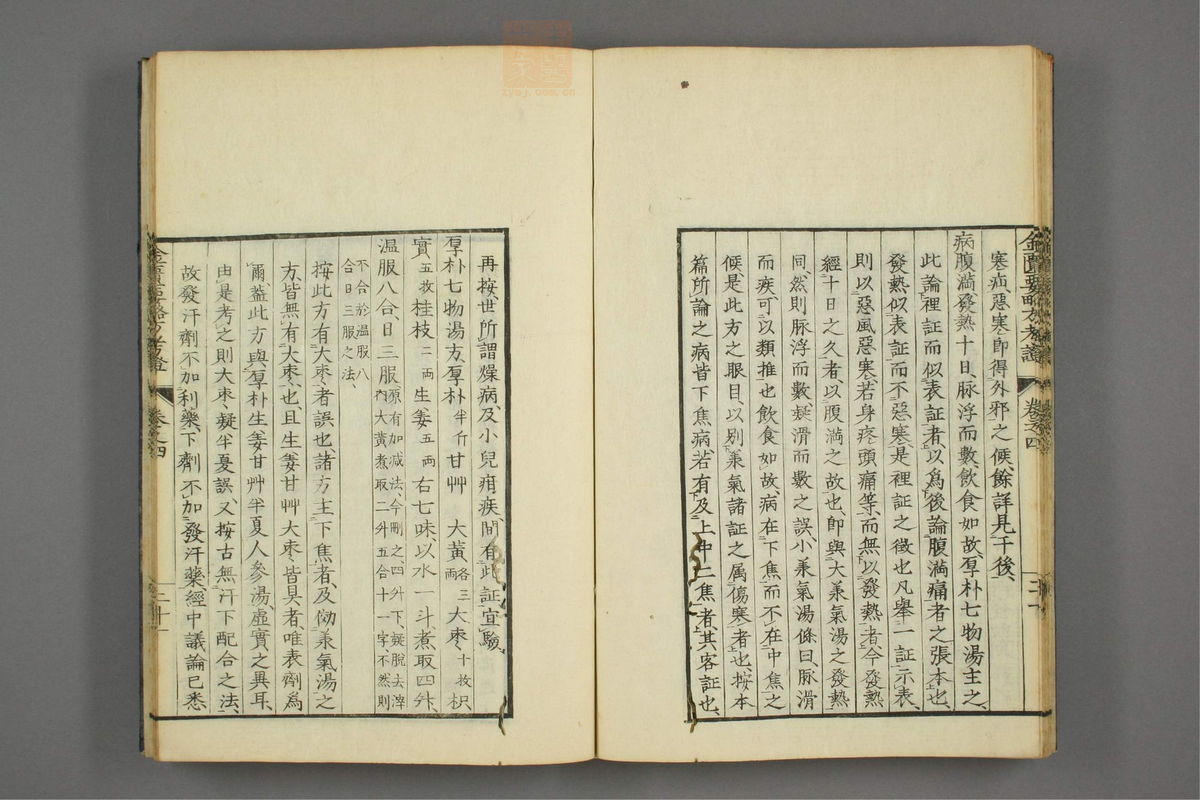 金匱要略方考證 卷之四
寒疝惡寒卽得外邪之候、餘詳見于後、
病腹滿發熱十日、脉浮而數、飲食如故、厚朴七物湯主之、
此論裡証而似表証者、以爲後論腹滿痛者之張本也、
發熱似表証而不惡寒、是裡証之徵也、凡舉一証示表、
則以惡風惡寒若身疼頭痛等、而無以發熱者、今發熱
經十日之久者、以腹滿之故也、卽與大承氣湯之發熱
同、然則脉浮而數疑滑而數之誤、小承氣湯條曰、脉滑
而疾可以類推也、飲食如故、病在下焦、而不在中焦之
候、是此方之眼目、以別承氣諸証之属傷寒者也、按本
篇所論之病皆下焦病、若有及上中二焦者、其客証也、
再按、世所謂燥病、及小兒疳疾、間有此証、宜驗、
厚朴七物湯方、厚朴半斤甘艸 大黃各三兩 大棗十枚枳
實五枚桂枝二兩生姜五兩右七味、以水一斗、煮取四升、
溫服八合、日三服原有加减法、今刪之、四升下、疑脫去滓
內大黃煮取二升五合十一字、不然則
不合於溫服八
合日三服之法、
按此方有大棗者誤也、諸方主下焦者、及傚承氣湯之
方、皆無有大棗也、且生姜甘艸大棗皆具者、唯表劑爲
爾、蓋此方與厚朴生姜甘艸半夏人參湯、虛實之異耳、
由是考之則大棗、疑半夏誤、又按古無汗下配合之法、
故發汗劑不加利藥、下劑不加發汗藥、經中議論已悉
卷之四